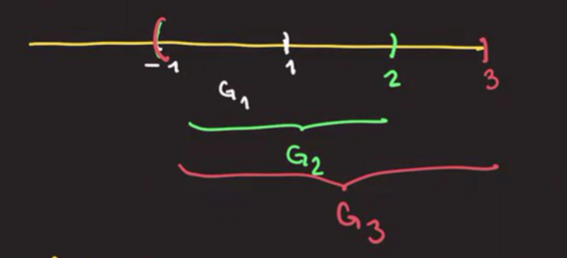 -1 1 2 3
G1
G2
G3